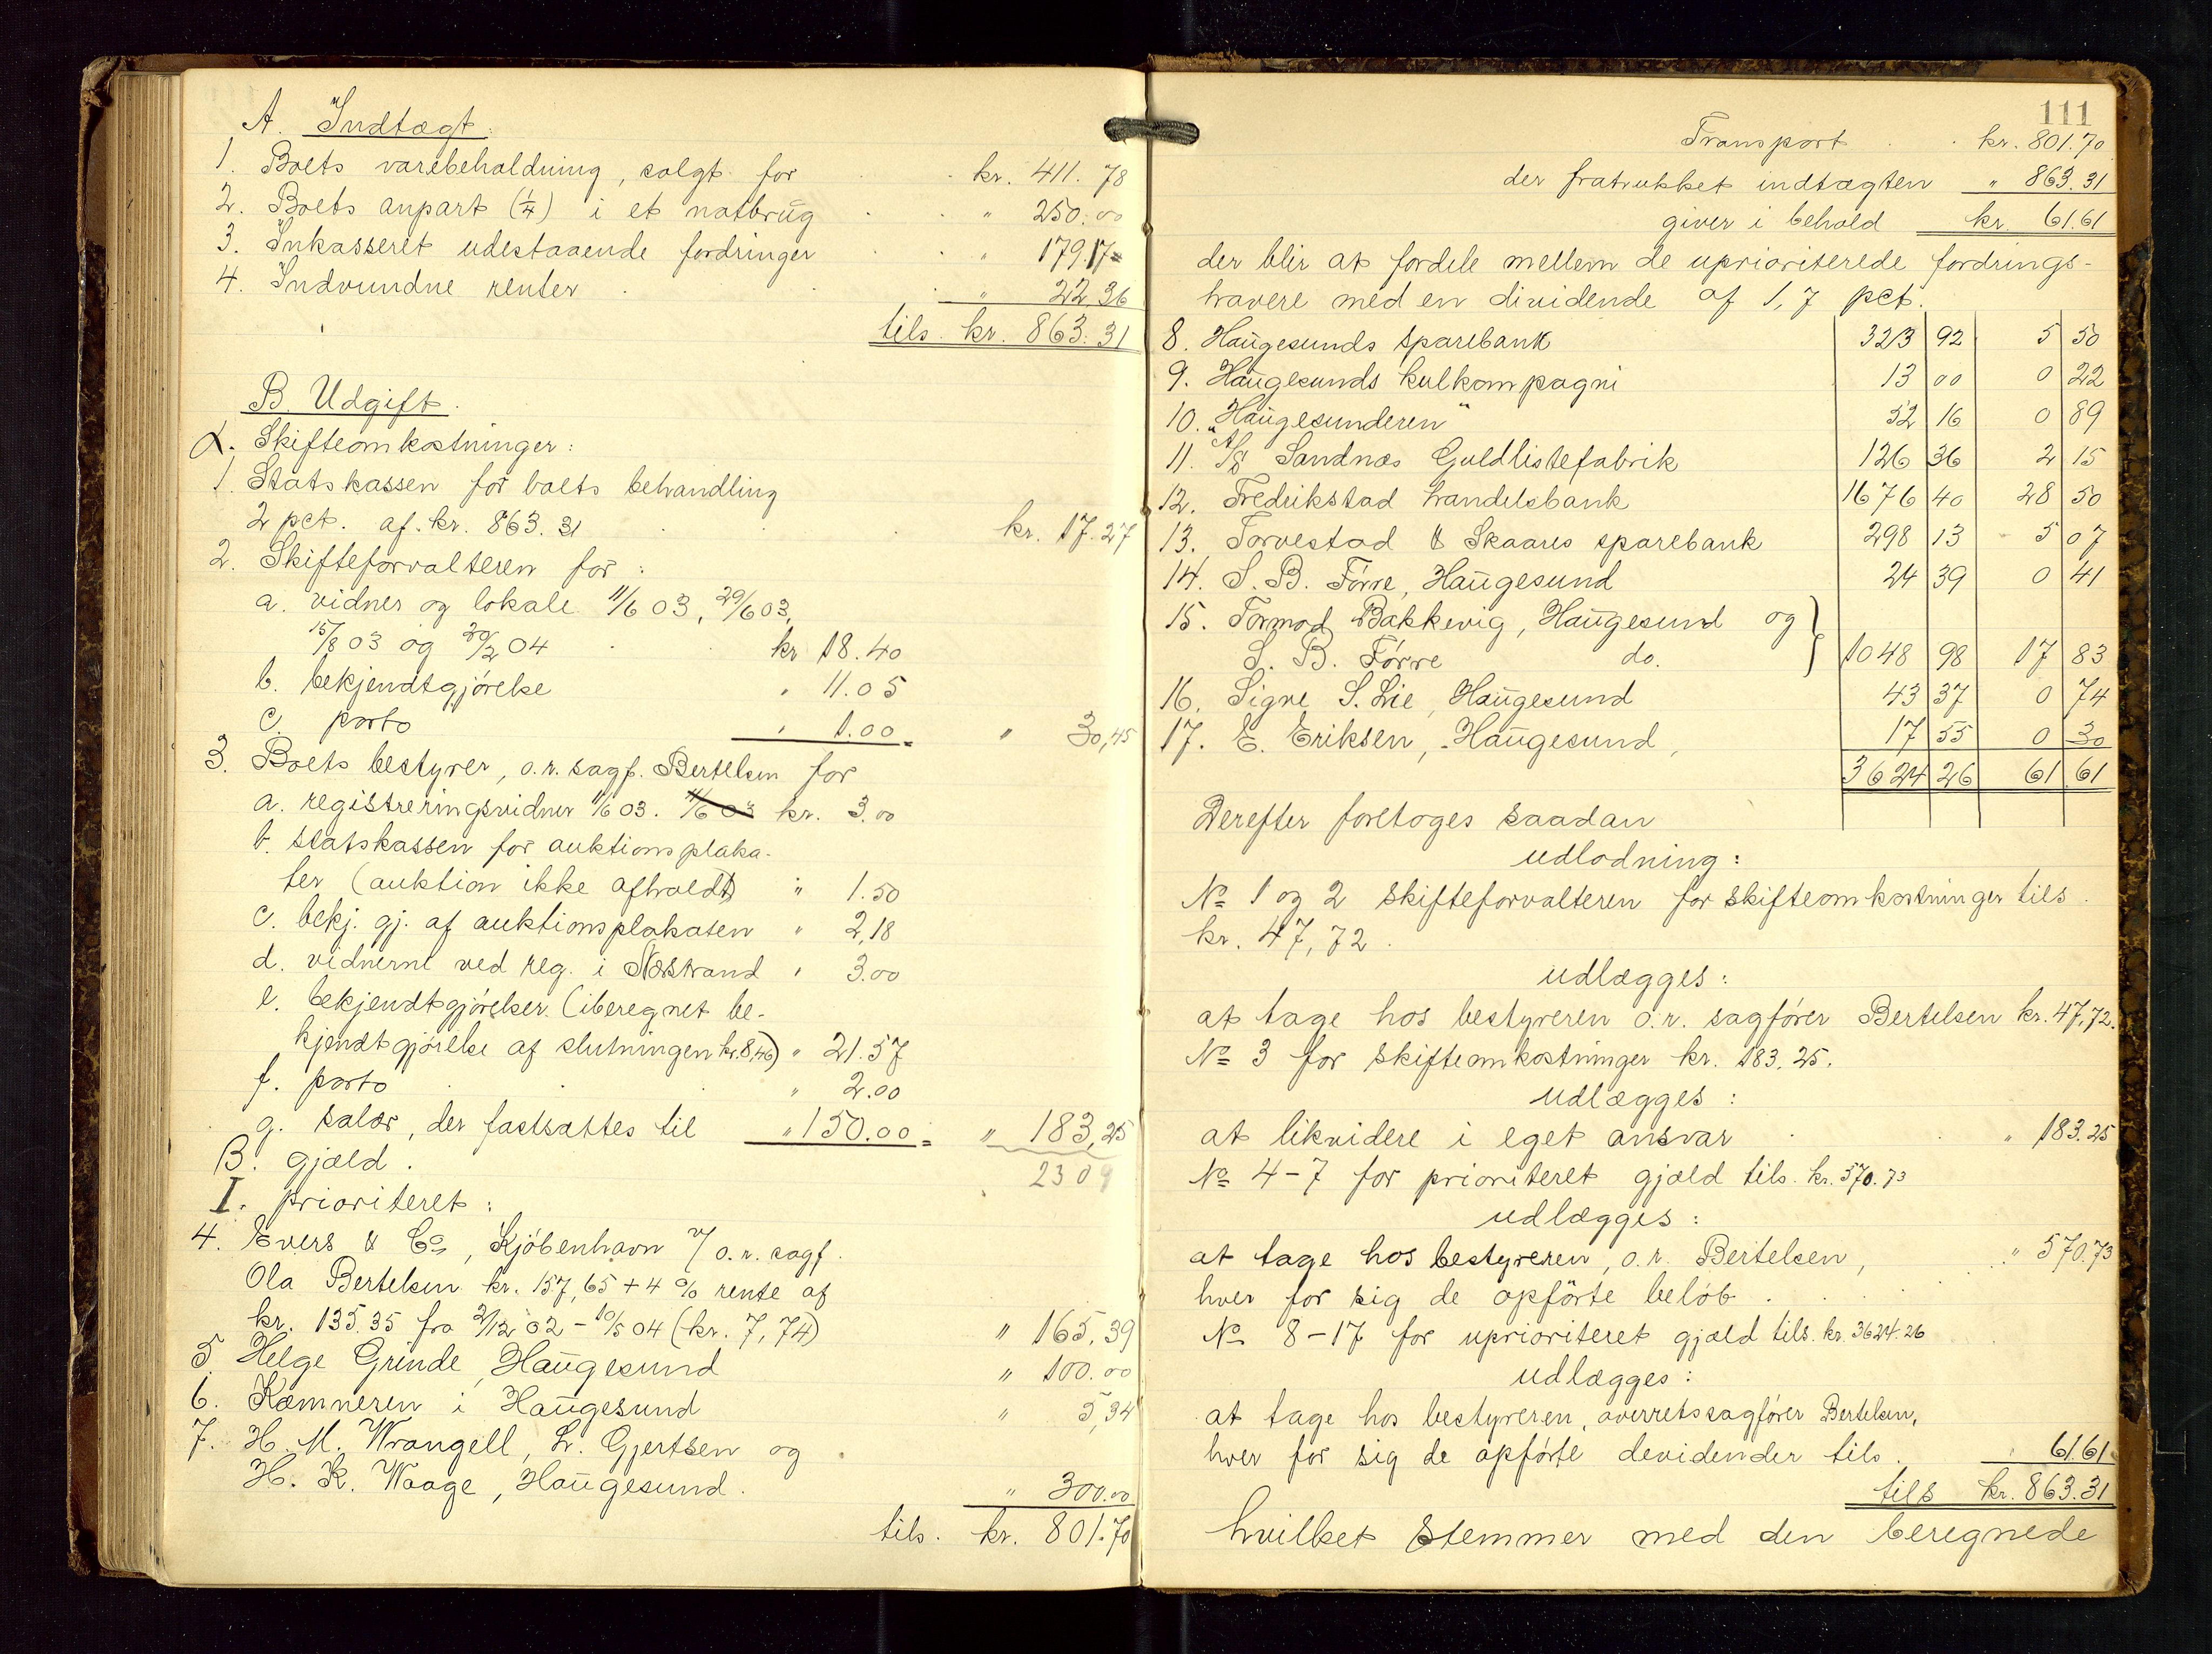 A. Indtægt:
1. Boets varebeholdning, solgt for kr. 411.78
2. Boets anpart (1/4) i et notbrug " 250.00
3. Inkasseret udestaaende fordringer " 179.17
4. Indvundne renter " 22.36
tils. kr. 863.31
B. Udgift.
α. Skifteomkostninger:
1. Statskassen for boets behandling
2 pct. af kr. 863.31 kr. 17.27
2. Skifteforvalteren for:
a. vidner og lokale 11/6 03, 29/6 03,
15/8 03 og 20/2 04 kr 18.40
b. bekjendtgjørelse " 11.05
c. porto " 1.00 " 30,45
3. Boets bestyrer, o.r.sagf. Bertelsen for
a. registreringsvidner 11/6 03. 11/6 03 kr. 3.00
b. statskassen for auktionsplaka-
ter (auktion ikke afholdt) " 1.50
c. bekj. gj. af auktionsplakaten " 2,18
d. vidnerne ved reg. i Nestrand " 3.00
e. bekjendtgjørelser (iberegnet be-
kjendtgjørelse af slutningen kr. 8,46) " 21.57
f. porto " 2.00
g. salær, der fastsættes til " 150.00 " 183,25
2309
β. gjæld.
I. prioriteret:
4. Evers & Co, Kjøbenhavn v/ o.r.sagf.
Ola Bertelsen kr. 157,65 + 4 % rente af
kr. 135.35 fra 2/12 02 - 10/5 04 (kr. 7,74) " 165,39
5. Helge Grinde, Haugesund " 100.00
6. Kæmneren i Haugesund " 5,34
7. H. M. Wrangell, L. Gjertsen og
H. K. Waage, Haugesund. " 300.00
tils. kr. 801.70
111
Transport kr. 801.70
der fratrukket indtægten " 863.31
giver i behold kr. 61.61
der blir at fordele mellem de uprioriterede fordrings-
havere med en dividende af 1,7 pct.
8. Haugesunds sparebank 323 92 5 50
9. Haugesunds kulkompagni 13 00 0 22
10. "Haugesunderen" 52 16 0 89
11. A/S Sandnæs Guldlistefabrik 126 36 2 15
12. Fredrikstad handelsbank 1676 40 28 50
13. Torvestad & Skaares sparebank 298 13 5 07
14. S. B. Førre, Haugesund 24 39 0 41
15. Tormod Bakkevig, Haugesund og
S. B. Førre do. 1048 98 17 83
16. Signe S. Lie, Haugesund 43 37 0 74
17. E. Eriksen, Haugesund, 17 55 0 30
3624 26 61 61
Derefter foretoges saadan
udlodning:
No 1 og 2 skifteforvalteren for skifteomkostninger tils.
kr. 47,72.
udlægges:
at tage hos bestyreren o.r. sagfører Bertelsen kr. 47,72.
No 3 for skifteomkostninger kr. 183.25.
udlægges:
at likvidere i eget ansvar " 183.25
No 4-7 for prioriteret gjæld tils. kr. 570.73
udlægges:
at tage hos bestyreren, o.r. Bertelsen, " 570.73
hver for sig de opførte beløb.
No 8-17 for uprioriteret gjæld tils. kr. 3624.26
udlægges:
at tage hos bestyreren, overretssagfører Bertelsen,
hver for sig de opførte devidender tils. " 61.61
tils kr. 863.31
hvilket stemmer med den beregnede